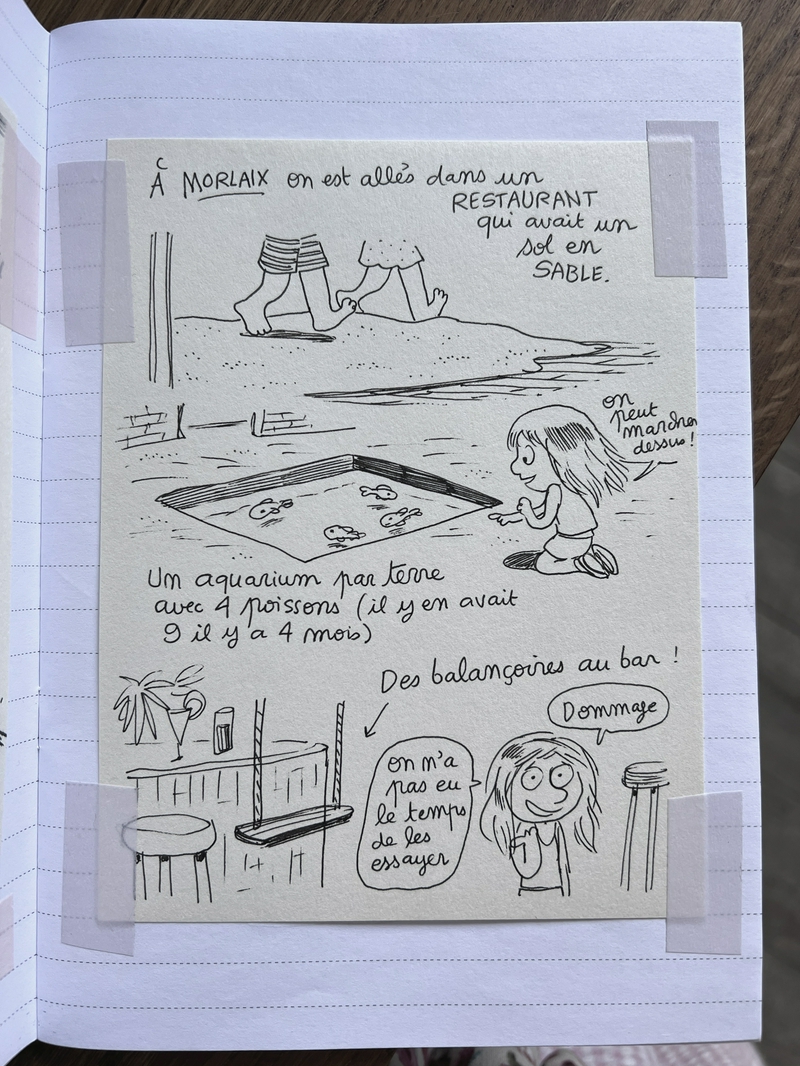 À MORLAIX on est allés dans un
RESTAURANT
qui avait un
sol en
SABLE.
on
peut
marcher
dessus !
Un aquarium par terre
avec 4 poissons (il y en avait
9 il y a 4 mois)
Des balançoires au bar !
Dommage
on n'a
pas eu
le temps
de les
essayer